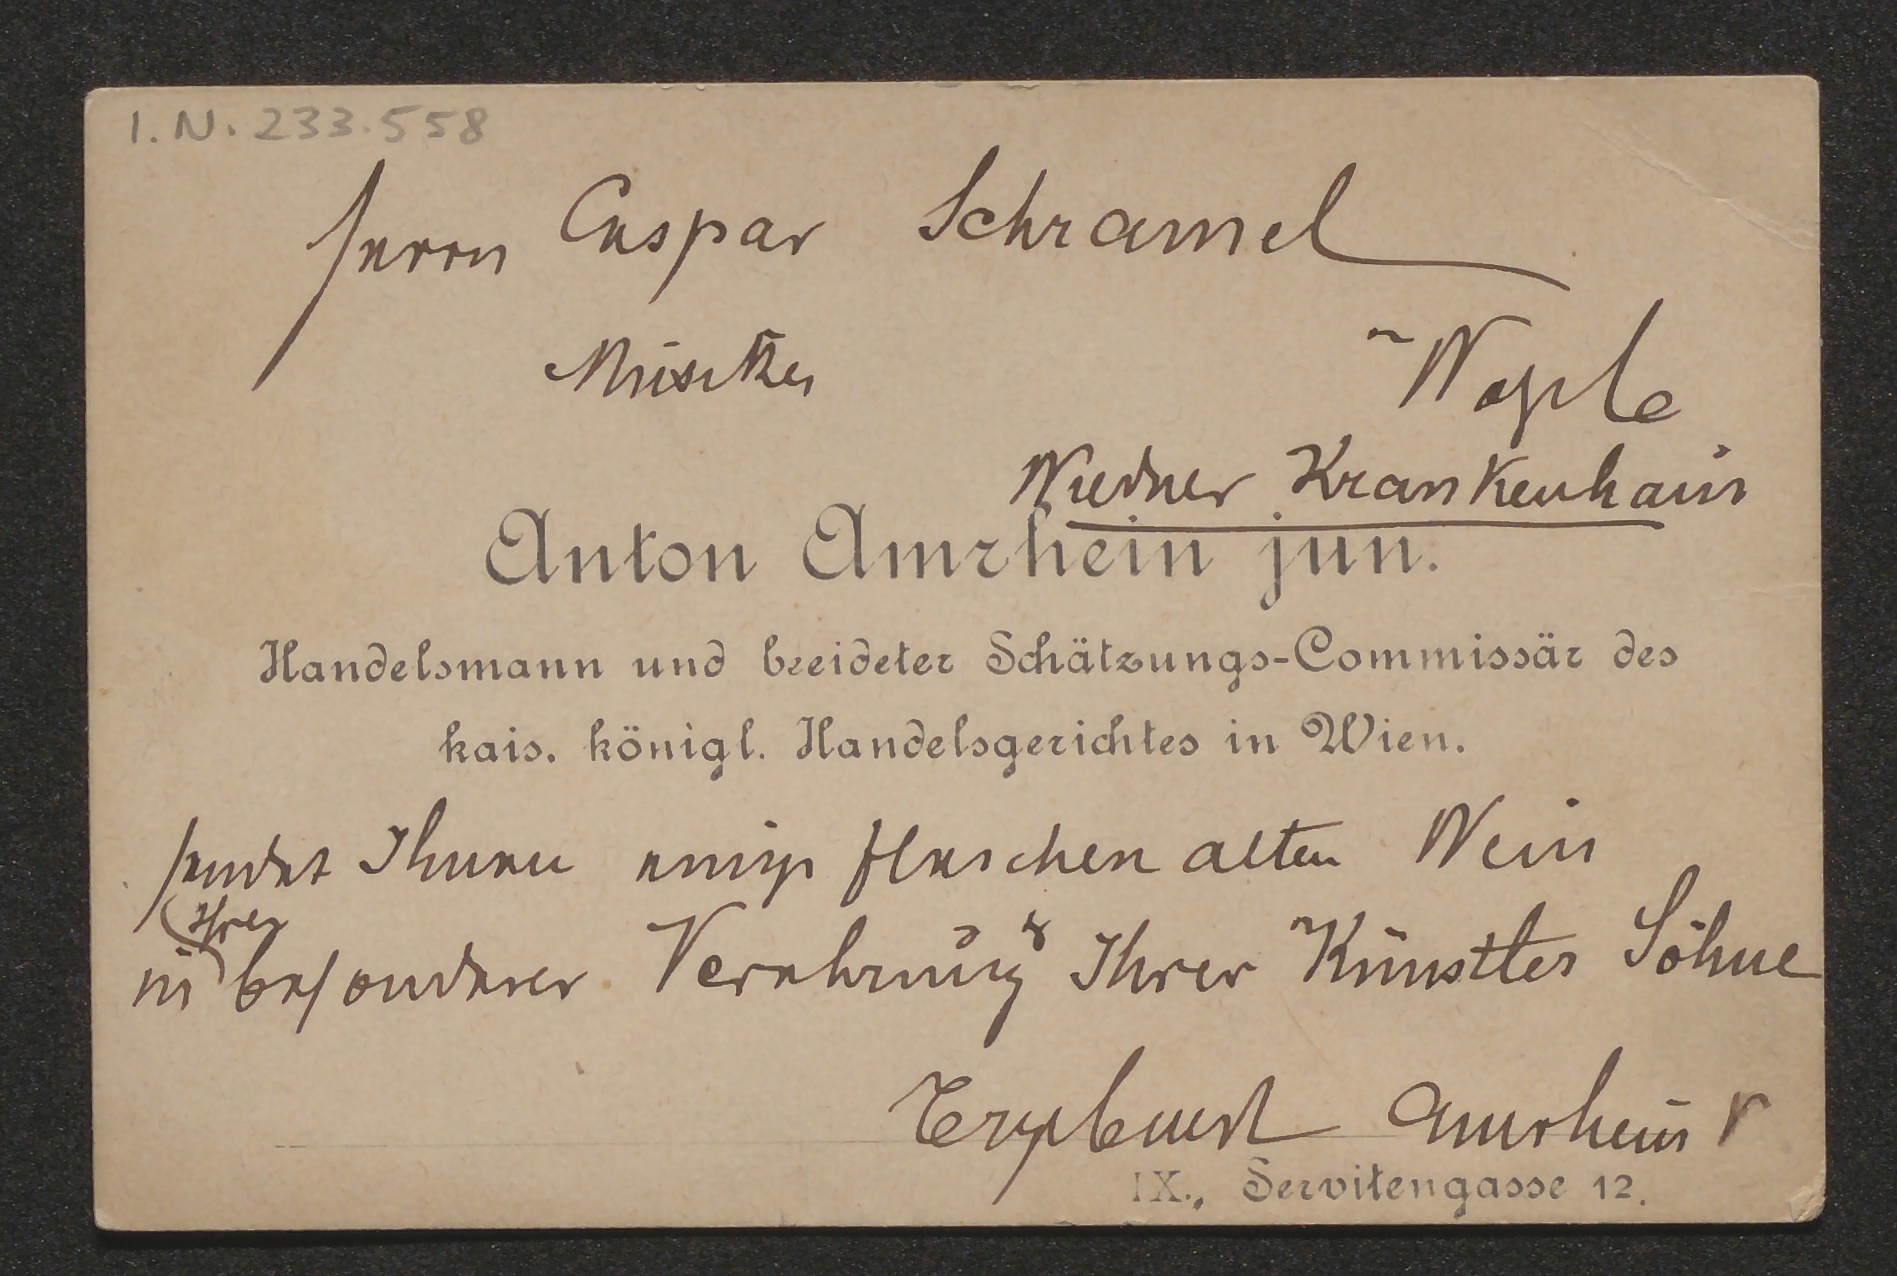 I.N. 233.558
Herrn Caspar Schramel
Musiker
Wiedner Krankenhaus
Anton Amrhein jun.
Handelsmann und beeideter Schätzungs-Commissär des
kais. königl. Handelsgerichtes in Wien.
sendet Ihnen einige Flaschen alten Wein
Ihrer
in besonderer Verehrung & Ihrer Künstler Söhne
Ergebenst Amrhein
IX., Servitengasse 12.